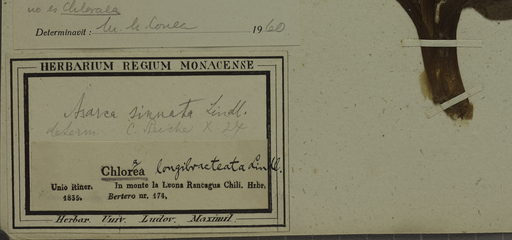 no es Chloraea
Determinavit: M. N. Correa 1960
HERBARIUM REGIUM MONACENSE
Asarca sinuata Lindl.
determ. C. Reiche X. 24
Chloræa longibracteata Lindl.
Unio itiner. In monte la Leona Rancagua Chili. Hrbr.
1835. Bertero nr. 174.
Herbar. Univ. Ludov. Maximil.